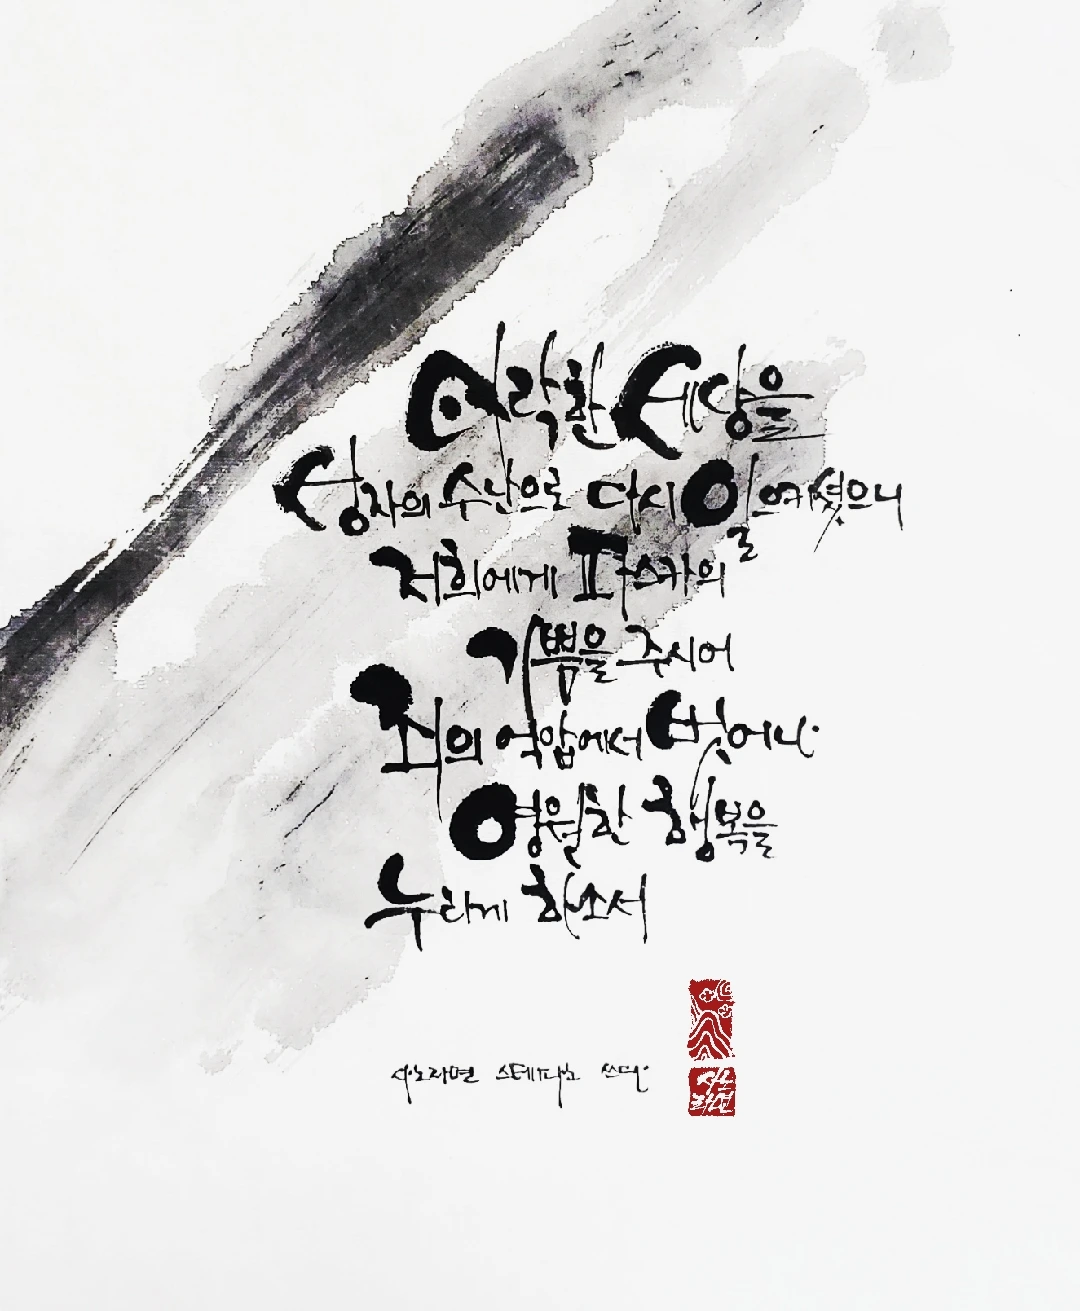 타락한 세상을
성자의 수난으로 다시 일으키셨으니
저희에게 파스카의
기쁨을 주시어
죄의 억압에서 벗어나
영원한 행복을
누리게 하소서
스테파노 쓰다